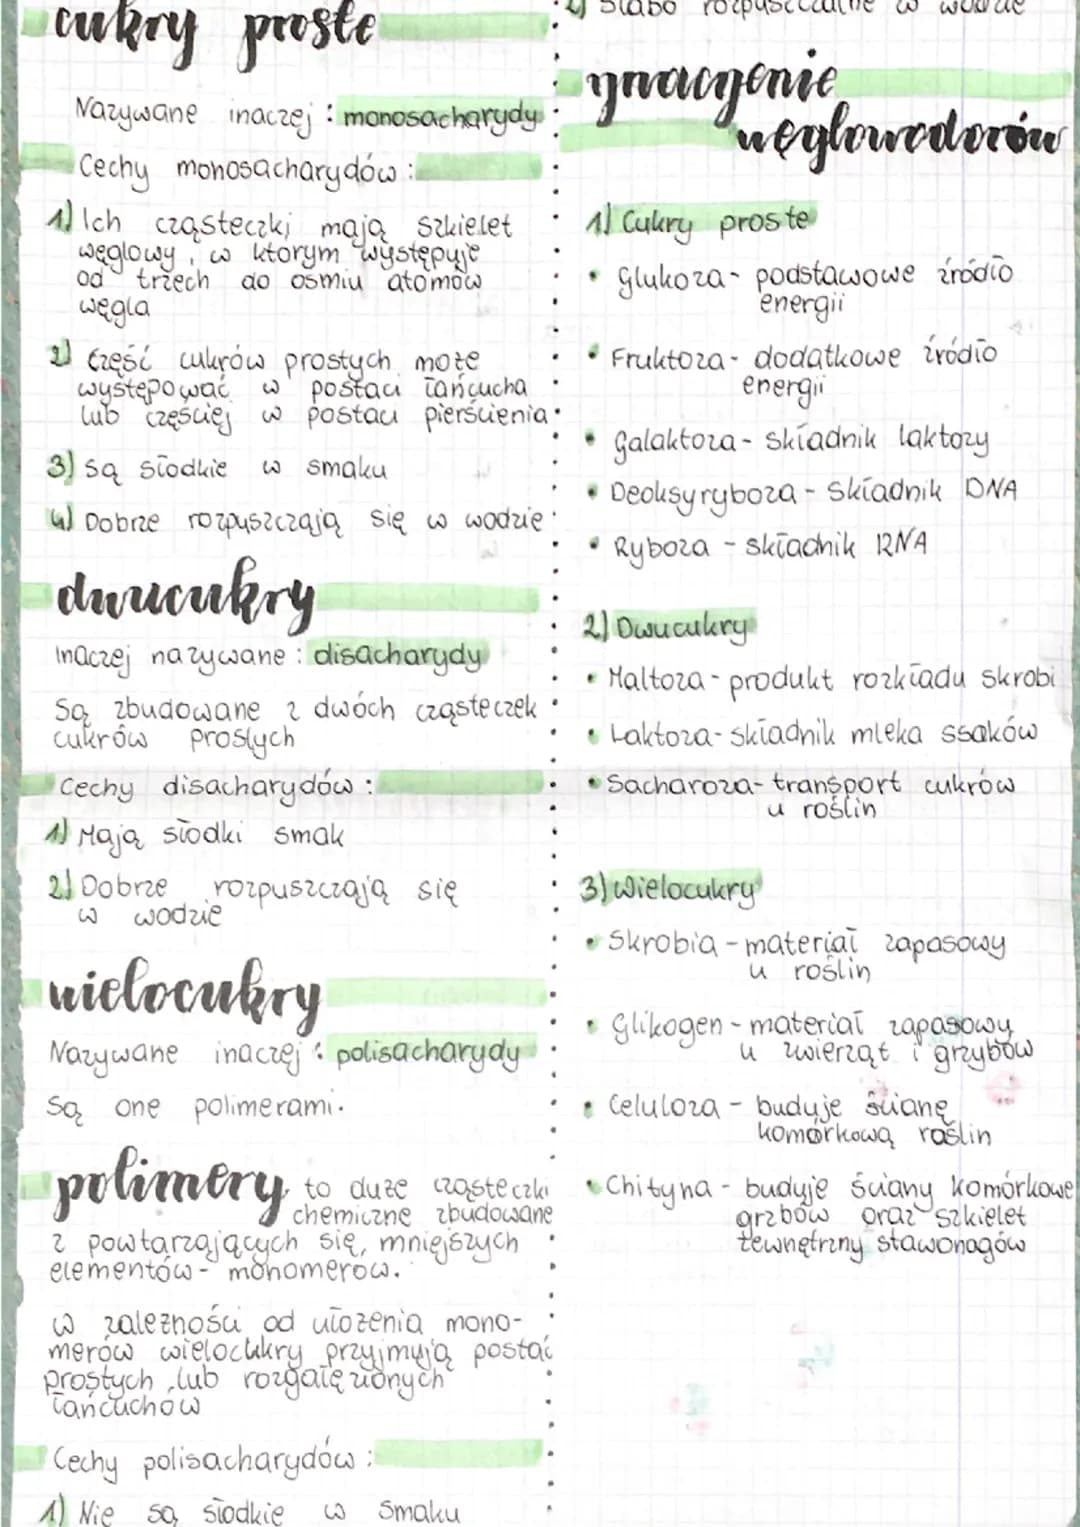 cukry proste
Nazywane inaczej : monosacharydy
Cechy monosacharydów :
1) Ich cząsteczki mają szkielet
węglowy, w którym występuje
od trzech do ośmiu atomów
węgla
2) Część cukrów prostych może
występować w postaci łańcucha
lub częściej w postaci pierścienia
3) są słodkie w smaku
4) Dobrze rozpuszczają się w wodzie
dwucukry
inaczej nazywane : disacharydy
Są zbudowane z dwóch cząsteczek
cukrów prostych
Cechy disacharydów :
1) Mają słodki smak
2) Dobrze rozpuszczają się
w wodzie
wielocukry
Nazywane inaczej : polisacharydy
Są one polimerami.
polimery to duże cząsteczki
chemiczne zbudowane
z powtarzających się, mniejszych
elementów - monomerów.
w zależności od ułożenia mono-
merów wielocukry przyjmują postać
prostych lub rozgałęzionych
łańcuchów
Cechy polisacharydów :
1) Nie są słodkie w smaku
2) Słabo rozpuszczalne w wodzie
znaczenie
węglowodorów
1) Cukry proste
• Glukoza - podstawowe źródło
energii
• Fruktoza - dodatkowe źródło
energii
• Galaktoza - składnik laktozy
• Deoksyryboza - składnik DNA
• Ryboza - składnik RNA
2) Dwucukry
• Maltoza - produkt rozkładu skrobi
• Laktoza - składnik mleka ssaków
• Sacharoza - transport cukrów
u roślin
3) Wielocukry
• Skrobia - materiał zapasowy
u roślin
• Glikogen - materiał zapasowy
u zwierząt i grzybów
• Celuloza - buduje ścianę
komórkową roślin
• Chityna - buduje ściany komórkowe
grzbów oraz szkielet
zewnętrzny stawonogów